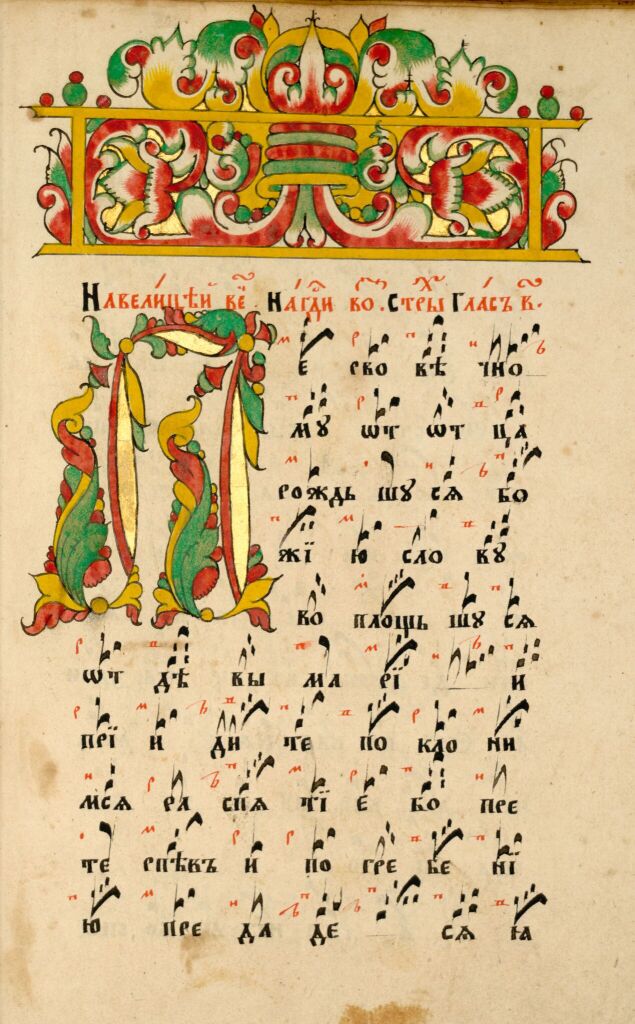 Навели́цѣй ве҃ . На́гдⷭ҇и во . стры гла́съ в҃ .
П е рво вѣ чно
мꙋ ѡт ѡт ца
рождь шꙋ сѧ бо
жї ю сло вꙋ
во площь шꙋ сѧ
ѡт дѣ вы ма рї и
прї и ди те по кло ни
мсѧ ра спѧ тї е бо пре
те рпѣвъ и по гре бе нї
ю пре да де сѧ ꙗ